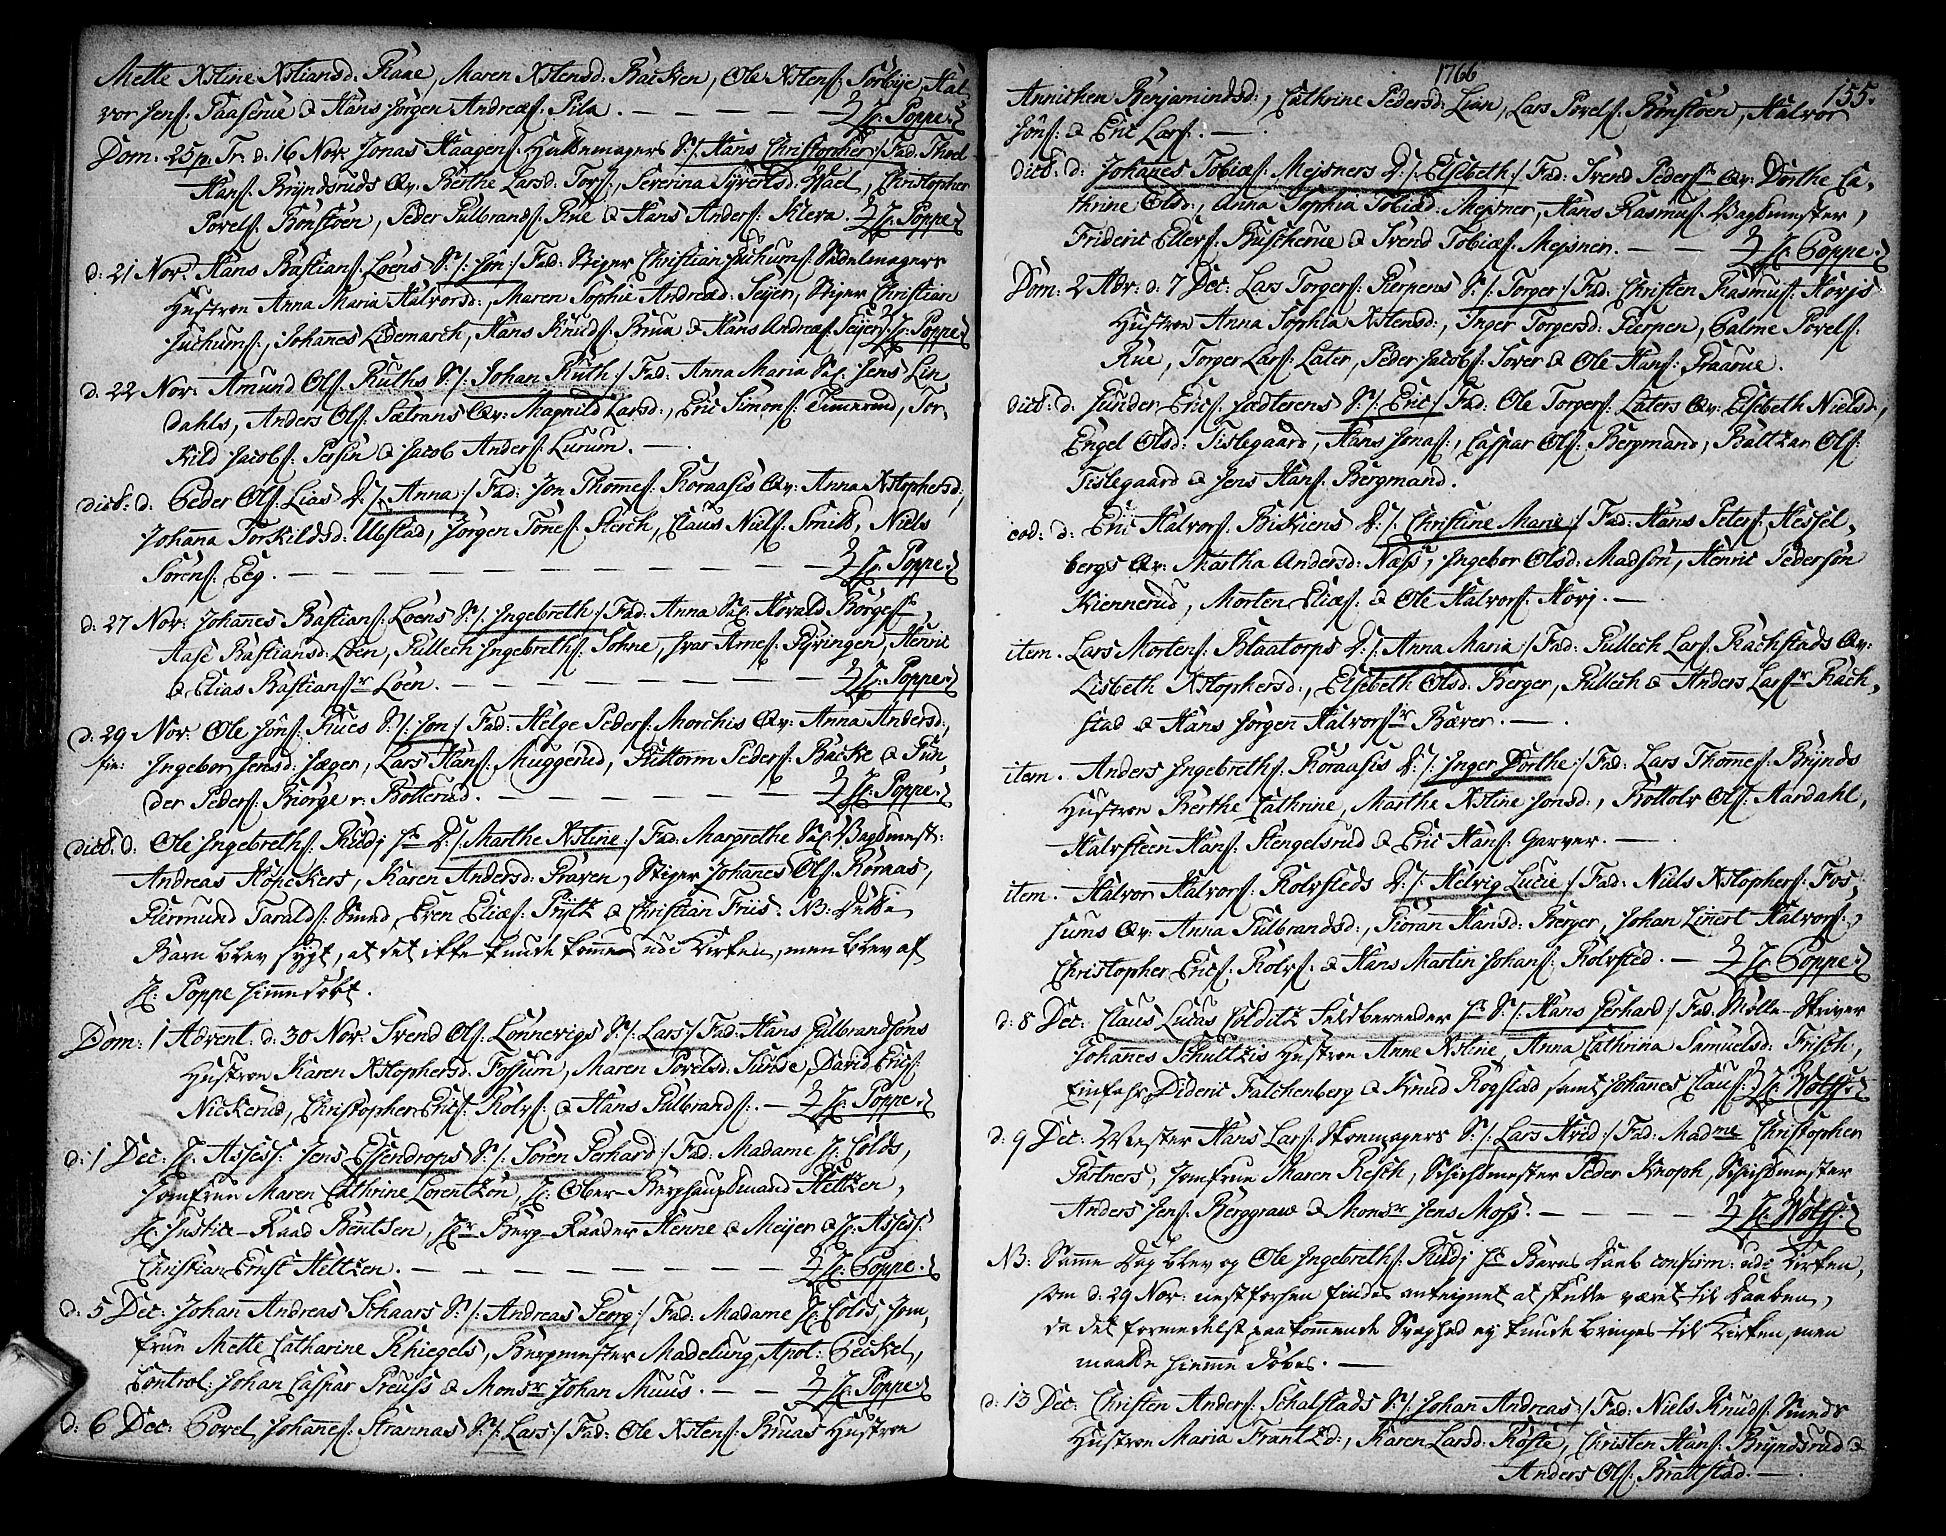 Mette Xstine Xstiansd: Raae, Maren Xstensd: Backen, Ole Xstens: Sørbye, Hal-
vor Jens: Paaserue & Hans Jørgen Andreæs: Pila. — H: Poppe.
Dom: 25 p. Tr. d. 16 Nov. Jonas Haagens: Huttemagers S:/: Hans Christopher:/ Fad: Thoel
Hans: Bryndsruds Qv: Berthe Larsd: Tors:, Severina Syvertsd: Wael, Christopher
Povels: Bønstøen, Peder Gulbrands: Rue & Hans Anders: Kleva. H: Poppe.
d: 21 Nov: Hans Bastians: Loens S:/: Jon:/ Fad: Stiger Christian Juchums: Sadelmagers
Hustroe Anna Maria Halvorsd:, Maren Sophia Andreæd: Seijer, Stiger Christian
Juchums:, Johannes Lidemarch, Hans Knuds: Brua & Hans Andreæs: Seijer. H: Poppe.
d: 22 Nov: Amund Ols: Ruths S:/: Johan Ruth:/ Fad: Anna Maria Sal: Jens Lin
dahls, Anders Ols: Sætrans Qv: Magnild Larsd:, Eric Simons: Timmerud, Tor-
kild Jacobs: Pessin & Jacob Anders: Lurum. —
dict: d. Peder Ols: Lias D:/: Anna:/ Fad: Jon Thommes: Koraasis Qv: Anna Xstophersd:,
Johanna Torkildsd: Ubstad, Jørgen Tønnes: Sterch, Claus Niels: Smitt, Niels
Sørens: Eeg. — H: Poppe.
d: 27 Nov: Johannes Bastians: Loens S:/: Ingebreth:/ Fad: Anna Sal: Havald Børgess:
Aase Bastiansd: Loen, Gullech Ingebreths: Sohne, Ivar Arnes: Gyvingen, Henric
& Elias Bastianssr Loen. — H: Poppe.
d: 29 Nov: Ole Jøns: Kues S:/: Jon:/ Fad: Helge Peders: Morchis Qv: Anna Andersd:,
Ingebor Jensd: Jæger, Lars Hans: Muggerud, Guttorm Peders: Backe & Gun,
der Peders: Biørge v: Botterud. — H: Poppe.
dict: d: Ole Ingebreths: Rudj D:/: Marthe Xstine:/ Fad: Margrethe Sal: Vagtmest:
Andreas Høpckers, Karen Andersd: Graven, Stiger Johannes Ols: Roraas,
Giermund Taralds: Smed, Even Eliæs: Prytz & Christian Friis. NB: Dette
Barn blev sygt, at det ikke kunde komme udi Kirken, men blev af
H: Poppe hiemmedøbt.
Dom: 1 Advent. d. 30 Nov: Svend Ols: Lonnevigs S:/: Lars:/ Fad: Hans Gulbrandsøns
Hustroe Karen Xstophersd: Fossum, Maren Povelsd: Sunde, David Erics:
Nickerud, Christopher Erics: Rolvs: & Hans Gulbrands:. — H: Poppe.
d: 1 Dec: H. Assess: Jens Essendrops S:/: Søren Gerhard:/ Fad: Madame H: Colds,
Jomfrue Maren Cathrine Lorentzon, H: Ober-Berghauptmand Heltzen,
H: Justice-Raad Bentsen, Hr Berg-Raader Henne & Meijer & H: Assess:
Christian Ernst Heltzen. — H: Poppe.
d: 5 Dec: Johan Andreas Schaars S:/: Andreas Georg:/ Fad: Madame H: Colds, Jom,
frue Mette Catharine Rhiegels, Bergmester Madelung, Apot: Peckel,
Control: Johan Caspar Preuss & Monsr Johan Muus. — H: Poppe.
d: 6 Dec: Povel Johannes: Strannas S:/: Lars:/ Fad: Ole Xstens: Bruas Hustroe
1766
155.
Annichen Benjamindsd:, Cathrine Pedersd: Lian, Lars Povels: Bønstøen, Halvor
Jøns: & Eric Lars:. —
dict: d: Johannes Tobiæs: Mejsners D:/: Elsebeth:/ Fad: Svend Peders: Qv: Dorthe Ca,
thrine Olsd:, Anna Sophia Tobiæd: Mejsner, Hans Rasmus: Vagtmester,
Frideric Ellers: Buscherue & Svend Tobiæs: Mejsner. — H: Poppe.
Dom: 2 Adv: d: 7 Dec: Lars Torgers: Gierpens S:/: Torger:/ Fad: Christen Rasmus: Horjs
Hustroe Anna Sophia Xstensd:, Inger Torgersd: Gierpen, Palme Povels:
Rue, Torger Lars: Later, Peder Jacobs: Sover & Ole Hans: Praarue.
dict: d: Gunder Erics: Sædterens S:/: Eric:/ Fad: Ole Torgers: Laters Qv: Elsebeth Nielsd:,
Engel Olsd: Tislegaard, Hans Jonas:, Caspar Ols: Bergmand, Baltzar Ols:
Tislegaard & Jens Hans: Bergmand.
eod: d: Eric Halvors: Biskiens D:/: Christine Marie:/ Fad: Hans Peters: Hessel,
bergs Qv: Martha Andersd: Næss, Ingebor Olsd: Madsøn, Henric Pedersøn
Kiennerud, Morten Eliæs: & Ole Halvors: Horj. —
item. Lars Mortens: Blaatorps D:/: Anna Maria:/ Fad: Gullech Lars: Rachstads Qv:
Lisbeth Xstophersd:, Elsebeth Olsd: Berger, Gullech & Anders Larssr Rach,
stad & Hans Jørgen Halvorssr Bærer. —
item. Anders Ingebreths: Koraasis D:/: Inger Dorthe:/ Fad: Lars Thommes: Brynds
Hustroe Berthe Cathrine, Marthe Xstine Jonsd:, Bottolv Ols: Aardahl,
Halvsteen Hans: Stengelsrud & Eric Hans: Garver. —
item. Halvor Halvors: Rolvsteds D:/: Helvig Lucie:/ Fad: Niels Xstophers: Fos,
sums Qv: Anna Gulbrandsd:, Gioran Hansd: Berger, Johan Linert Halvors:,
Christopher Erics: Rolvs: & Hans Martin Johans: Rolvsted. — H: Poppe.
d: 8 Dec: Claus Lucas Colditz Feldbereder S:/: Hans Gerhard:/ Fad: Mølle-Skriver
Johannes Schultzis Hustroe Anne Xstine, Anna Cathrina Samuelsd: Frisch,
Einfahr. Dideric Falchenberg & Knud Rogstad samt Johannes Claus: H: Wolff.
d: 9 Dec: Mester Hans Lars: Skoemagers S:/: Lars Hvid:/ Fad: Madme Christopher
Gartners, Jomfrue Maren Resch, Schichtmester Peder Knoph, Schichtmester
Anders Jens: Berggrav & Monsr Jens Moss. — H: Wolff.
NB: Samme Dag blev og Ole Ingebreths: Rudj Barns Daab confirm: udi Kirken,
som d. 29 Nov: nestforhen findes antegnet at skulle været til Daaben,
da det formedelst paakommende Svaghed ey kunde bringes til Kirken, men
maatte hiemme døbes. —
d: 13 Dec: Christen Anders: Schalstads S:/: Johan Andreas:/ Fad: Niels Knuds: Smeds
Hustroe Maria Frantzd:, Karen Larsd: Koste, Christen Hans: Bryndsrud &
Anders Ols: Brattstad. —